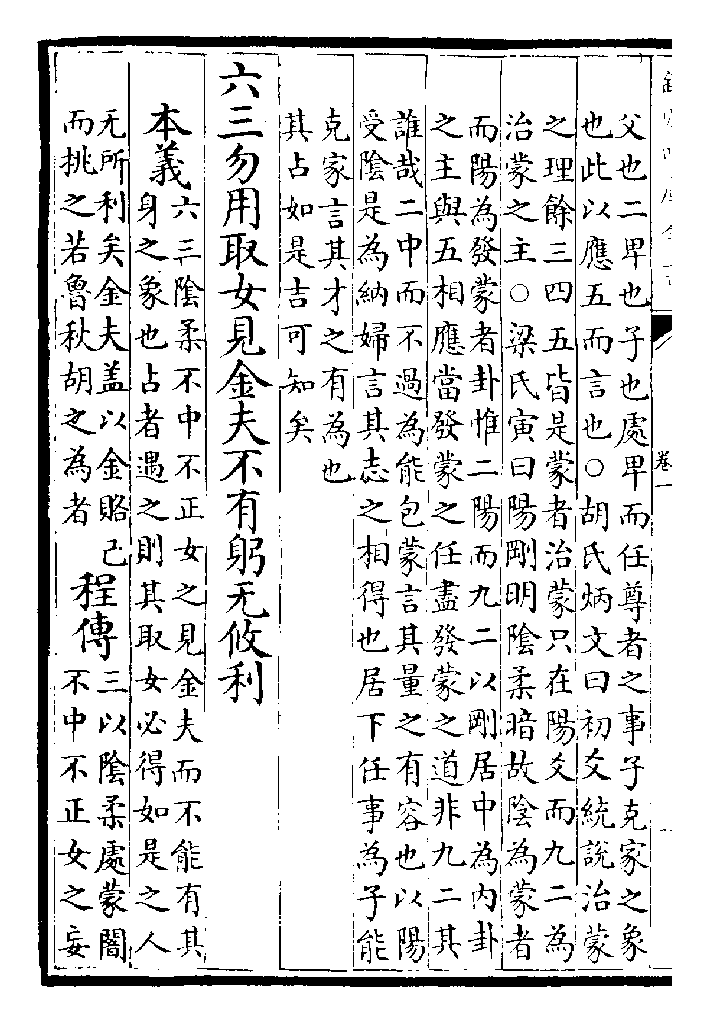 卷一
父也二卑也子也處卑而任尊者之事子克家之象
也此以應五而言也○胡氏炳文曰初爻統說治蒙
之理餘三四五皆是蒙者治蒙只在陽爻而九二為
治蒙之主○梁氏寅曰陽剛明陰柔暗故陰為蒙者
而陽為發蒙者卦惟二陽而九二以剛居中為內卦
之主與五相應當發蒙之任盡發蒙之道非九二其
誰哉二中而不過為能包蒙言其量之有容也以陽
受陰是為納婦言其志之相得也居下任事為子能
克家言其才之有為也
其占如是吉可知矣
六三勿用取女見金夫不有躬无攸利
本義
六三陰柔不中不正女之見金夫而不能有其
身之象也占者遇之則其取女必得如是之人
无所利矣金夫盖以金賂己
而挑之若魯秋胡之為者
程傳
三以陰柔處蒙闇
不中不正女之妄